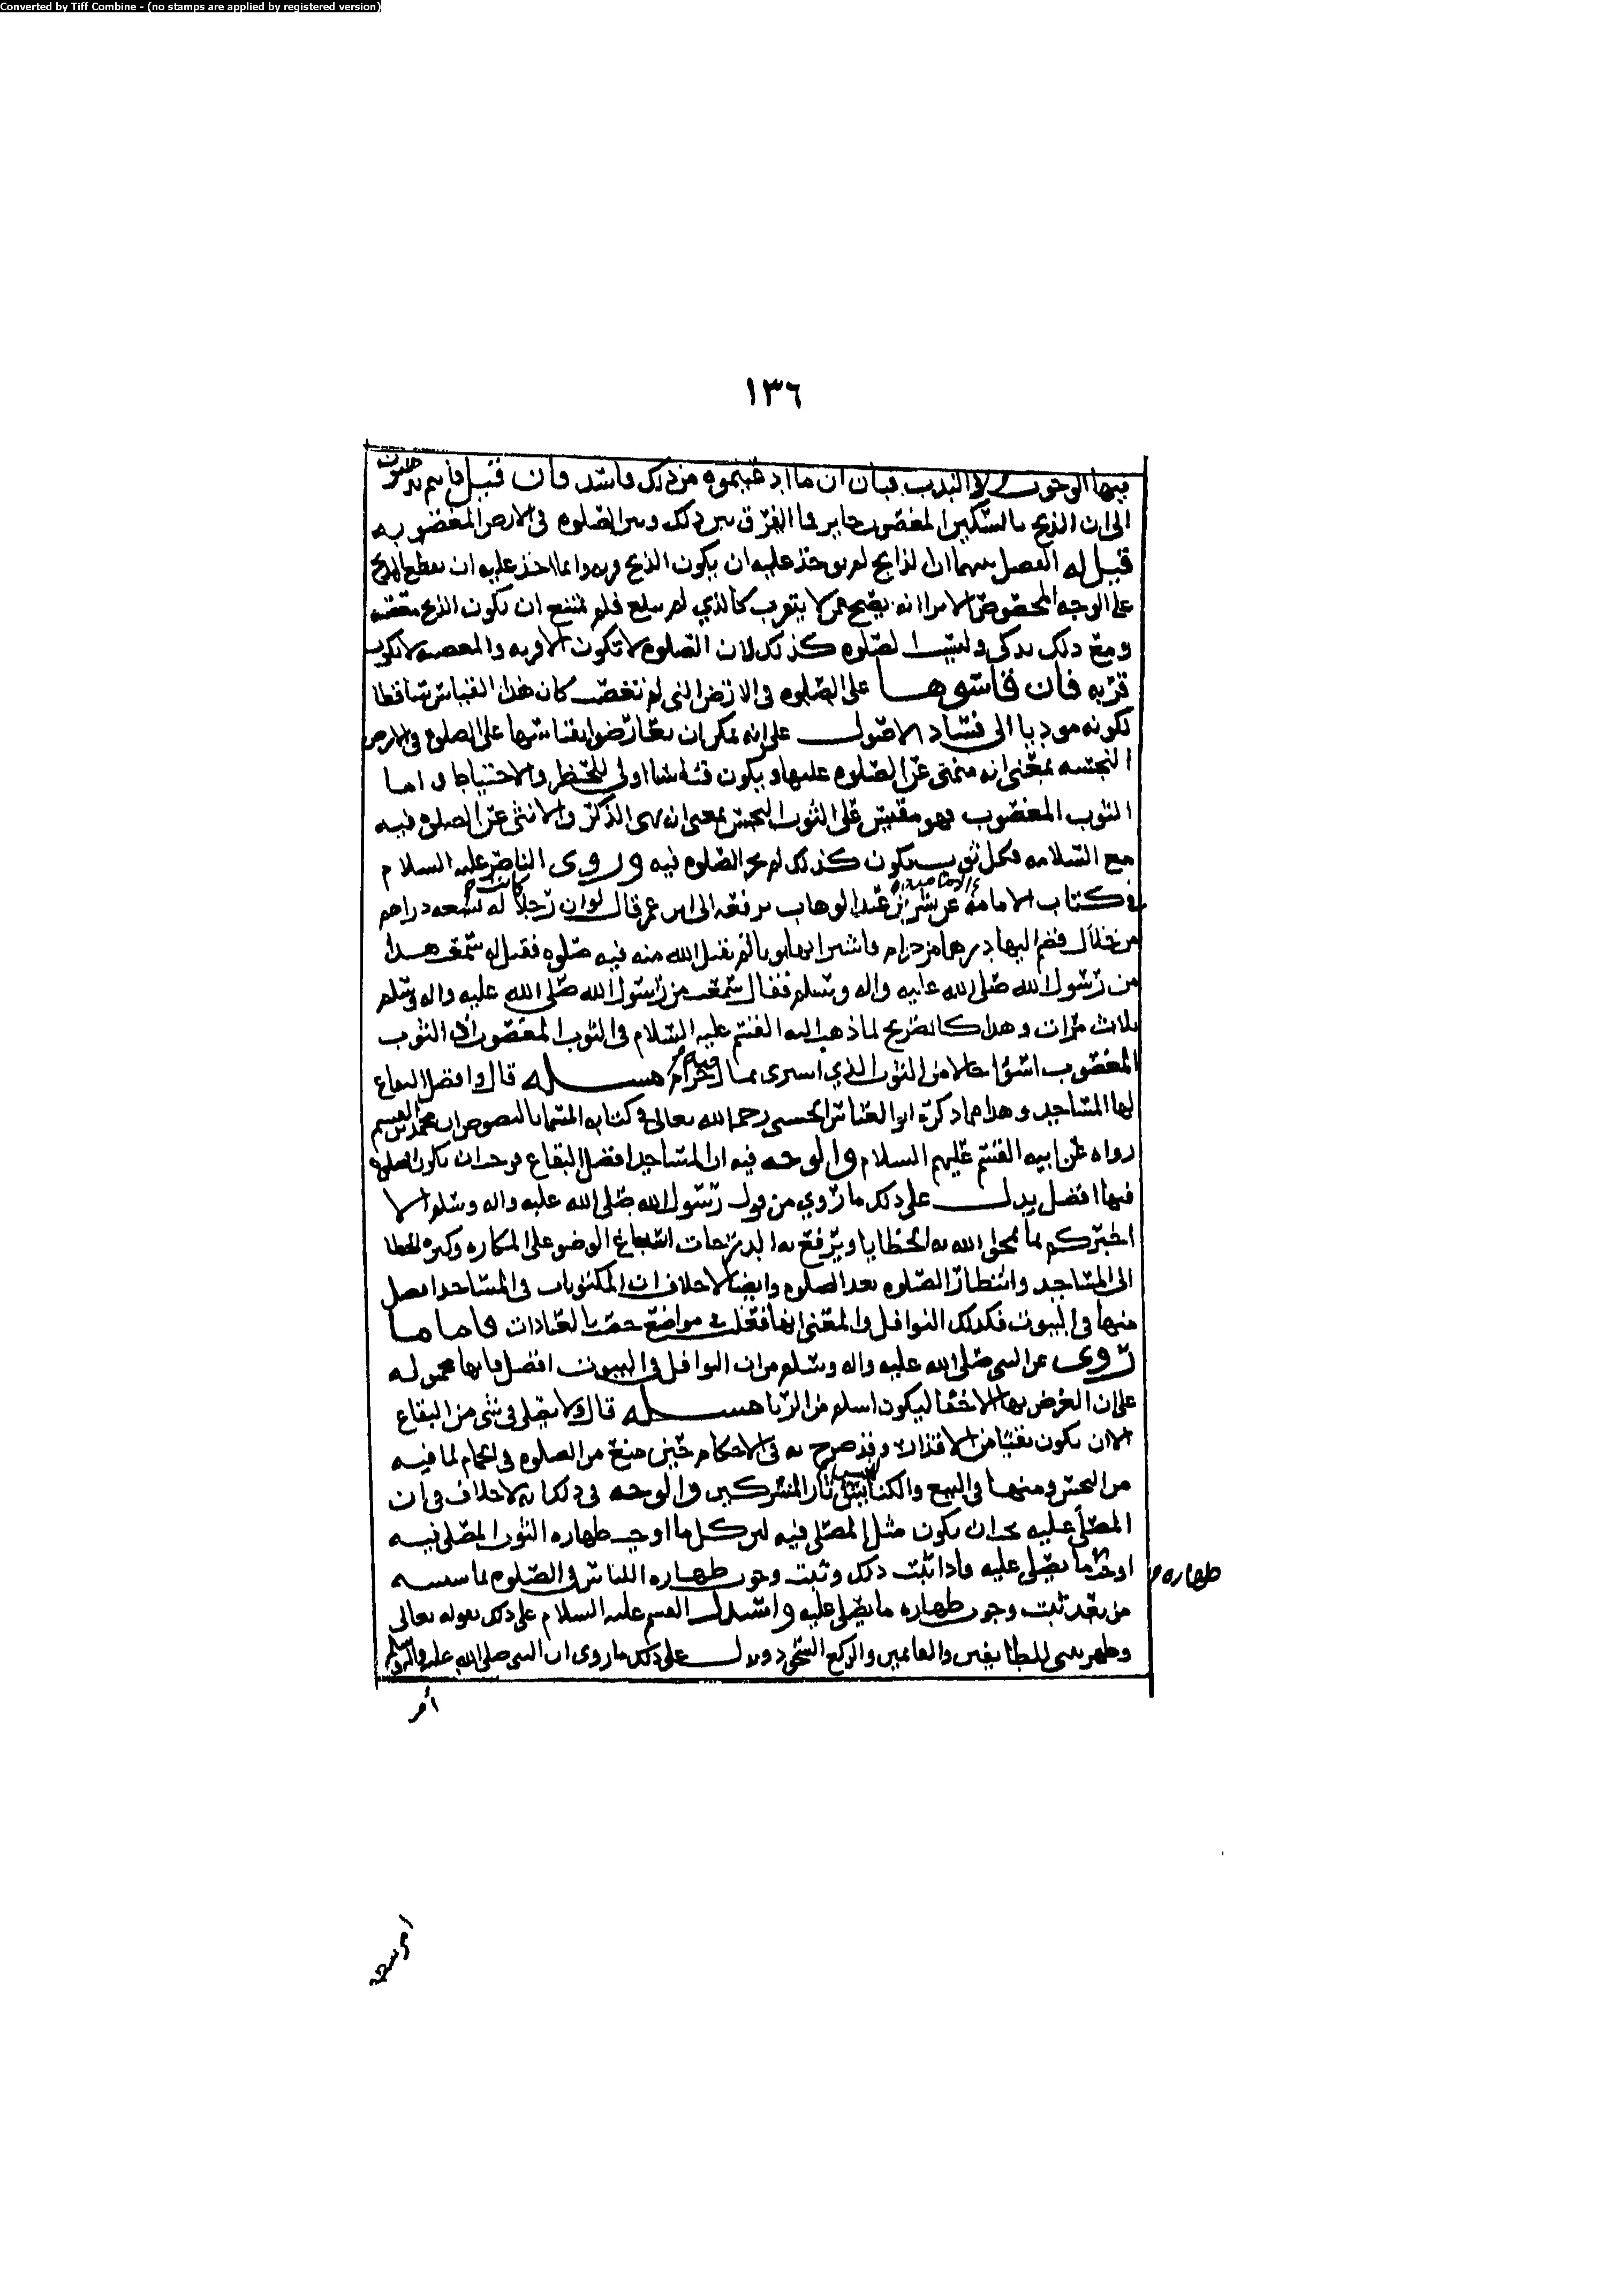 Converted by Tiff Combine - (no stamps are applied by registered version)
١٣٦
فيها الوجوب لا الندب فبان ان ما ادعيتموه من ذلك فاسد فان قيل فانتم تذهبون
الى ان الذبح بالسكين المغصوب جايز فما الفرق بين ذلك وبين الصلوه في الارض المغصوبه
قيل له الفصل بينهما ان الذابح لم يوخذ عليه ان يكون الذبح قربه وانما اخذ عليه ان يقطع
على الوجه المخصوص الا ترا انه يصح ممن لا يتقرب كالذي لم يبلغ فلم يمتنع ان يكون الذبح معصيه
ومع ذلك يذكى وليست الصلوه كذلك لان الصلوه لا تكون الا قربه والمعصيه لا تكون
قربه فان قاسوها على الصلوه في الارض التي لم تغصب كان هذا القياس ساقطا
لكونه موديا الى فساد الاصول على انه يمكن ان يعارضوا بقياسها على الصلوه في الارض
النجسه بمعنى انه منهي عن الصلوه عليها ويكون قياسنا اولى للحظر والاحتياط واما
الثوب المغصوب فهو مقيس على الثوب النجس بمعنى انه نهى الذكر والانثى عن الصلوه فيه
مع السلامه فكل ثوب يكون كذلك لم تجز الصلوه فيه وروى الناصر عليه السلام
في كتاب الامامه عن بشر بن عبد الوهاب يرفعه الى ابن عمر قال لو ان رجلا كانت له تسعه دراهم
من حلال فضم اليها درهما من حرام فاشترا بها ثوبا لم يقبل الله منه فيه صلوه فقيل له سمعت هذا
من رسول الله صلى الله عليه واله وسلم فقال سمعت من رسول الله صلى الله عليه واله وسلم
ثلاث مرات وهذا كالصريح لما ذهب اليه القسم عليه السلام في الثوب المغصوب لان الثوب
المغصوب اسوا حالا من الثوب الذي اشترى بمال فيه حرام مسله قال وافضل البقاع
لها المساجد وهذا مما ذكره ابو العباس الحسني رحمه الله تعالى في كتابه المسما بالنصوص ان محمد بن القسم
رواه عن ابيه القسم عليهم السلام والوجه فيه ان المساجد افضل البقاع فوجب ان تكون الصلوه
فيها افضل يدل على ذلك ما روي من قول رسول الله صلى الله عليه واله وسلم الا
اخبركم بما يمحق الله به الخطايا ويرفع به الدرجات اسباغ الوضو على المكاره وكثره الخطا
الى المساجد وانتظار الصلوه بعد الصلوه وايضا لا خلاف ان المكتوبات في المساجد افضل
منها في البيوت فكذلك النوافل والمعنى انها فعلت في مواضع خصت بالعبادات فاما ما
روى عن النبي صلى الله عليه واله وسلم من ان النوافل في البيوت افضل فانها محموله
على ان الغرض بها الاخفا ليكون اسلم من الريا مسله قال ولا يصلى في شي من البقاع
الا ان يكون نقيا من الاقذار وقد صرح به في الاحكام حين منع من الصلوه في الحمام لما فيه
من النجس ومنها في البيع والكنايس آثار المشركين والوجه في ذلك انه لا خلاف في ان
المصلى عليه يجب ان يكون مثل المصلى فيه لان كل ما اوجب طهاره الثوب المصلى فيه
اوجب طهاره ما يصلى عليه فاذا ثبت ذلك وثبت وجوب طهاره اللباس في الصلوه لما سنبينه
من بعد ثبت وجوب طهاره ما يصلى عليه واستدل القسم عليه السلام على ذلك بقوله تعالى
وطهر بيتي للطايفين والقايمين والركع السجود ويدل على ذلك ما روى ان النبي صلى الله عليه واله وسلم
أمر